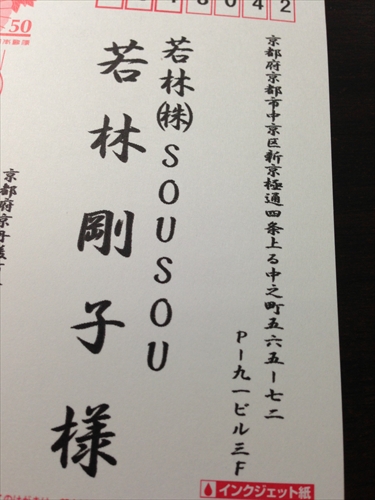 50
8042
京都府京都市中京区新京極通四条上る中之町五六五ー七二
P－九一ビル三F
若林㈱SOUSOU
若林剛子様
インクジェット紙